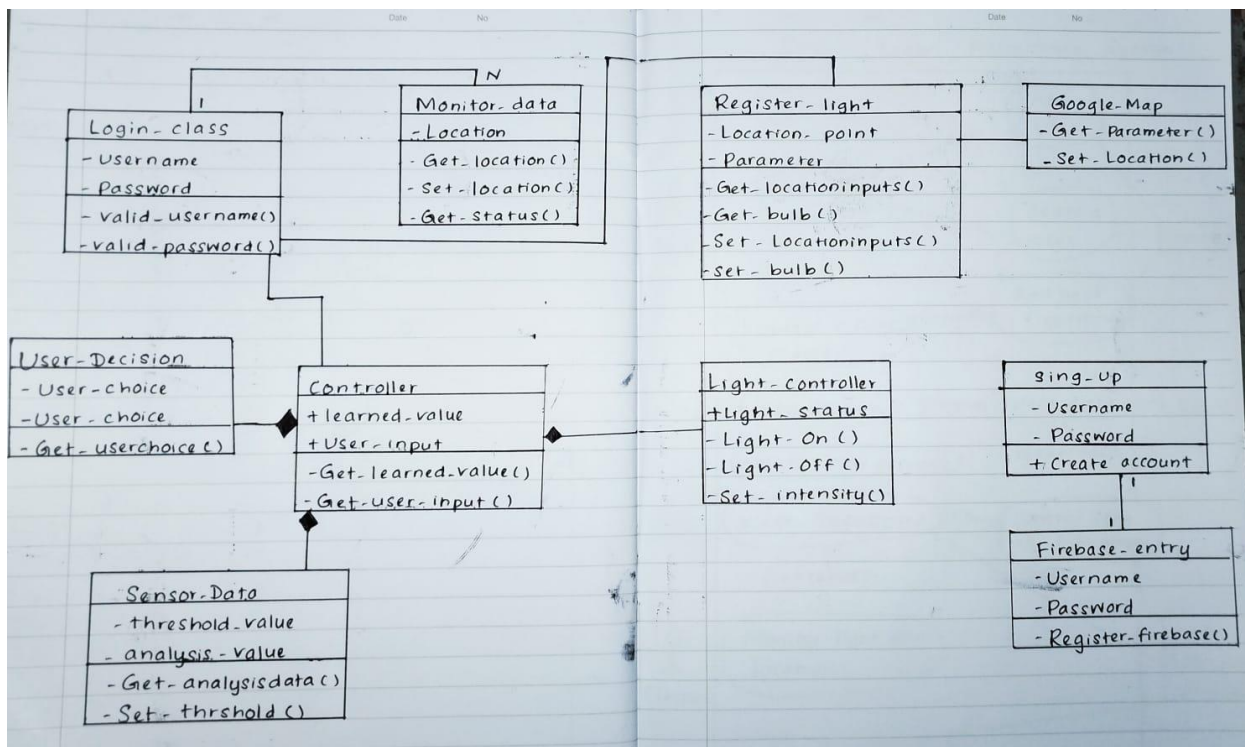 Date No
Date No
1
N
Login_class
- Username
- Password
- valid_username()
- valid_password()
Monitor_data
- Location
- Get_location()
- Set_location()
- Get_status()
Register_light
- Location_point
- Parameter
- Get_locationinputs()
- Get_bulb()
- Set_Locationinputs()
- set_bulb()
Google_Map
- Get_Parameter()
- Set_Location()
User_Decision
- User_choice
- User_choice
- Get_userchoice()
Controller
+ learned_value
+ User_input
- Get_learned_value()
- Get_user_input()
Light_controller
+ Light_status
- Light_On()
- Light_Off()
- Set_intensity()
Sing_up
- Username
- Password
+ Create account
1
1
Firebase_entry
- Username
- Password
- Register_firebase()
Sensor_Data
- threshold_value
- analysis_value
- Get_analysisdata()
- Set_thrshold()